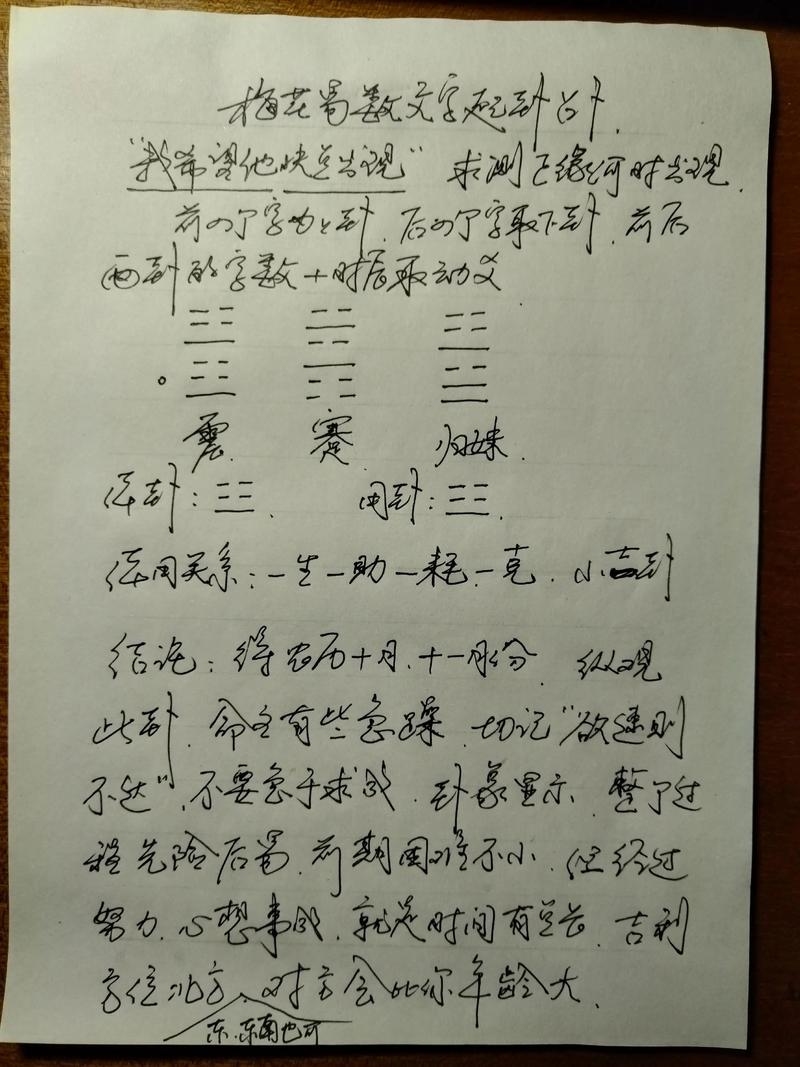 梅花易数文字起卦占卜.
"我希望他快点出现" 求测正缘何时出现.
前四个字为上卦. 后四个字取下卦. 前后
两卦的字数+时辰取动爻
震. 蹇. 归妹.
体卦: 用卦:
体用关系: 一生一助一耗. 一克. 小吉卦
结论: 得农历十月、十一月份. 纵观
此卦. 命主有些急躁. 切记"欲速则
不达", 不要急于求成. 卦象显示. 整个过
程先险后易. 前期困难不小. 但经过
努力. 心想事成. 就是时间有点长. 吉利
方位北方、对方会比你年龄大.
东.东南也可